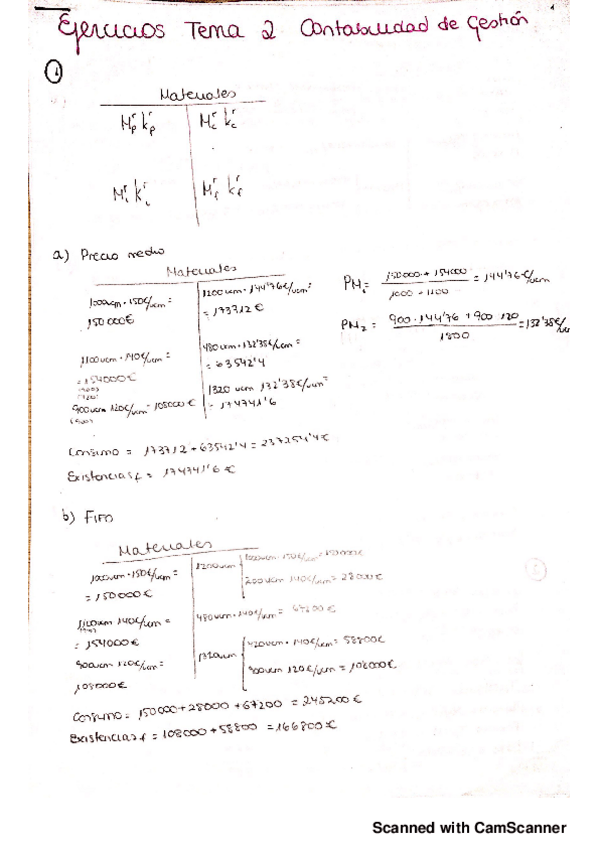 Ejercicios Tema 2 Contabilidad de Gestión
1
Materiales
a) Precio medio
Materiales
1000ucm · 150€/ucm =
150000€
1100ucm · 140€/ucm =
= 154000€
900ucm 120€/ucm = 108000€
= 173712€
480ucm · 132'38€/ucm =
= 63542'4
1320 ucm 132'38€/ucm =
= 174741'6
PM₁ = 150000 + 154000 / 1000 + 1100 = 144'76€/ucm
PM₂ = 900 · 144'76 + 900 120 / 1800 = 132'38€/u
Consumo = 173712 + 63542'4 = 237254'4€
Existencias f = 174741'6€
b) FIFO
Materiales
1000ucm · 150€/ucm =
= 150000€
140€/ucm =
= 154000€
900ucm 120€/ucm =
108000€
1200ucm
1000ucm · 150€/ucm = 150000€
200ucm 140€/ucm = 28000€
480ucm · 140€/ucm = 67200€
1320ucm
420ucm · 140€/ucm = 58800€
900ucm 120€/ucm = 108000€
Consumo = 150000 + 28000 + 67200 = 245200€
Existencias f = 108000 + 58800 = 166800€
Scanned with CamScanner